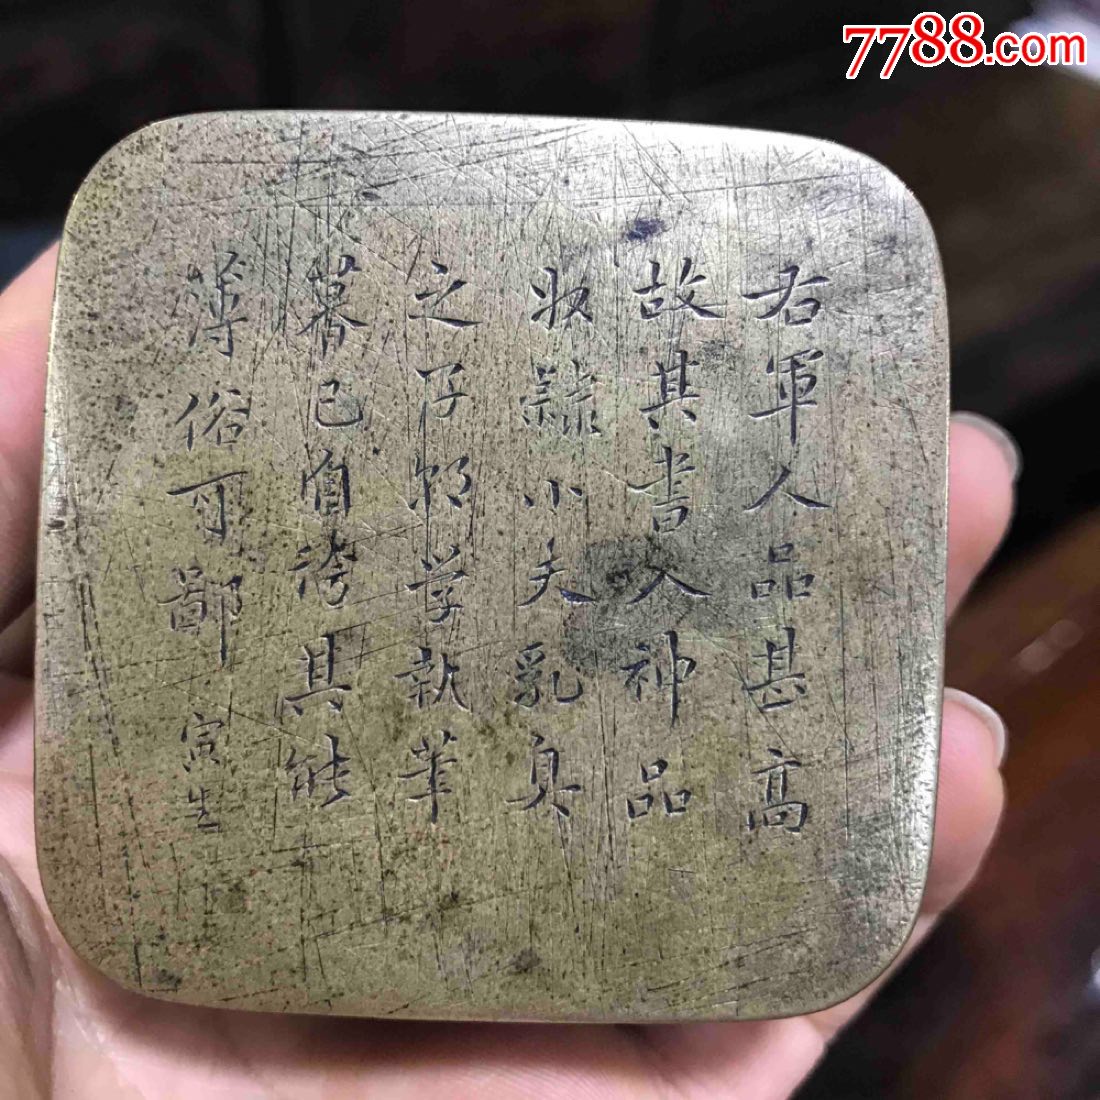 7788.com
右軍人品甚高
故其書入神品
奴隸小夫乳臭
之子朝学執筆
暮已自誇其能
薄俗可鄙 寅生